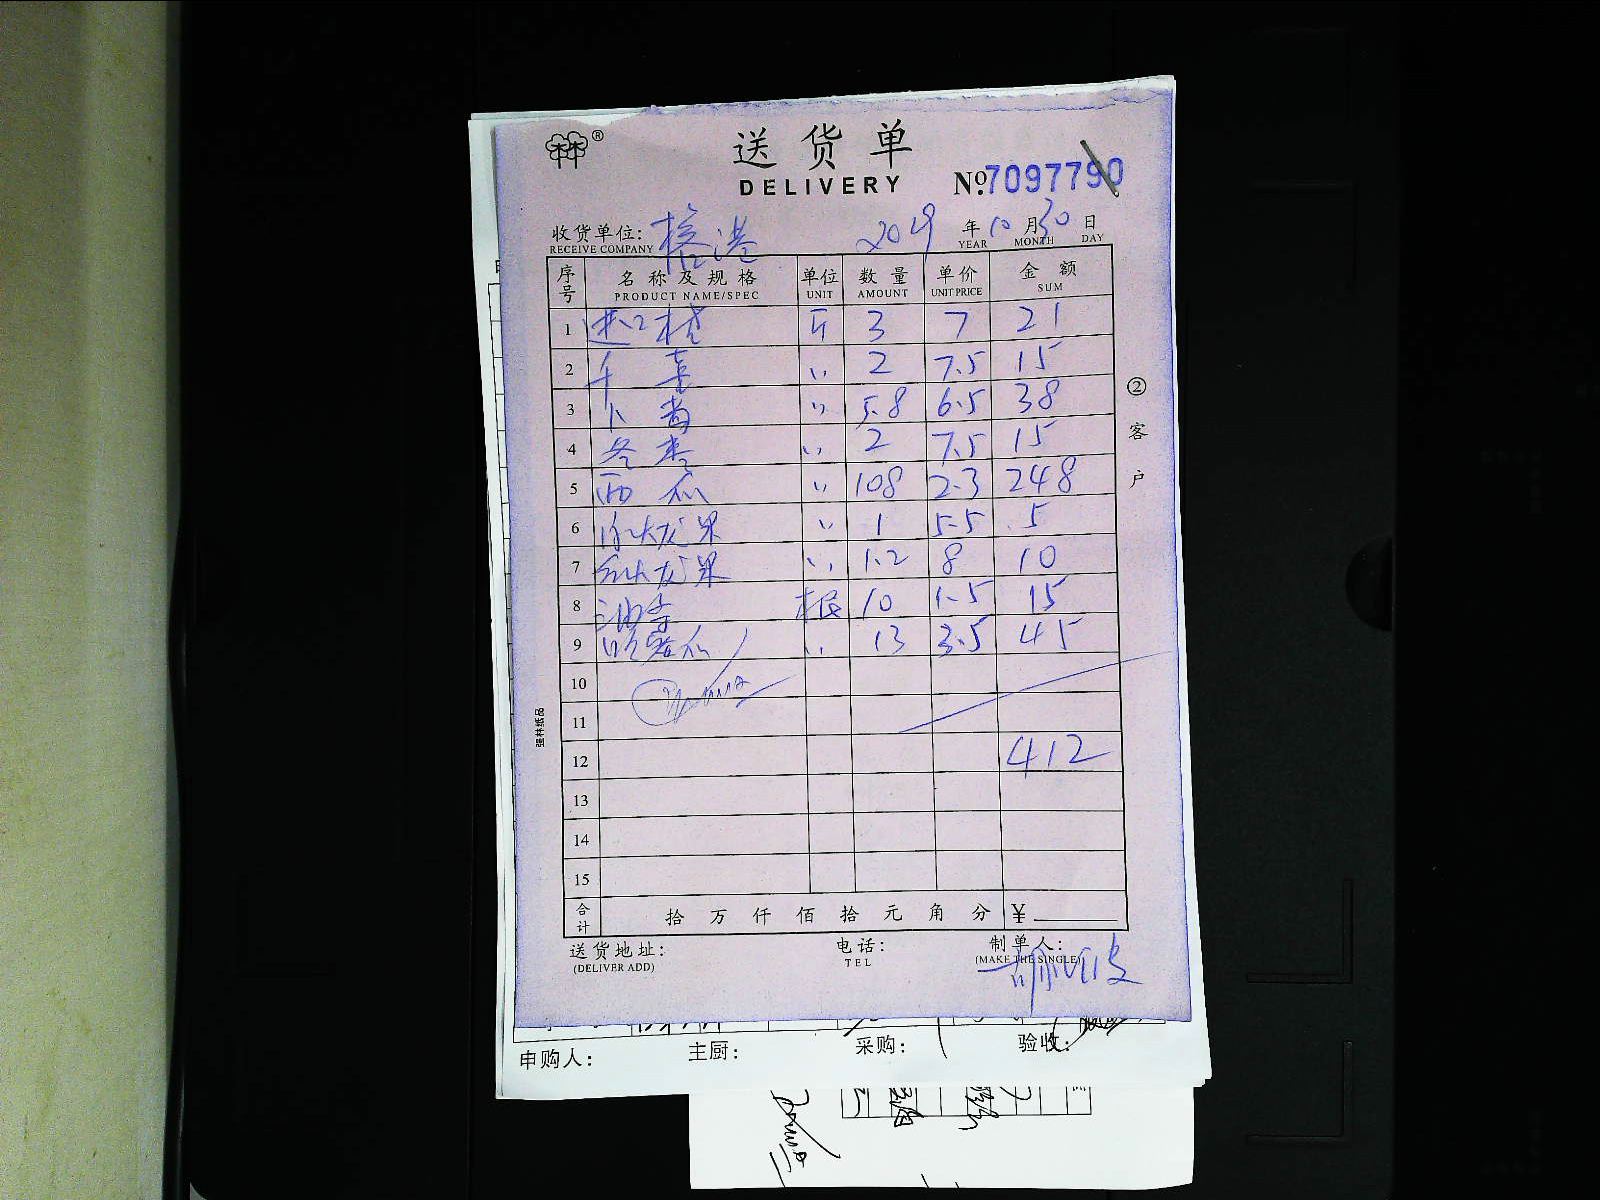 林®
送货单
DELIVERY
№:7097790
收货单位: 港 2019 年 10 月 30 日
RECEIVE COMPANY YEAR MONTH DAY
序号 名称及规格 单位 数量 单价 金额
PRODUCT NAME/SPEC UNIT AMOUNT UNIT PRICE SUM
1 进口橙 斤 3 7 21
2 千喜 〃 2 7.5 15
3 〃 5.8 6.5 38
4 冬枣 〃 2 7.5 15
5 西瓜 〃 108 2.3 248
6 白火龙果 〃 1 5.5 5
7 红火龙果 〃 1.2 8 10
8 油条 根 10 1.5 15
9 哈密瓜 〃 13 3.5 45
10
11
12 412
13
14
15
合计 拾 万 仟 佰 拾 元 角 分 ¥
② 客户
强林纸品
送货地址: 电话: 制单人:
(DELIVER ADD) TEL (MAKE THE SINGLE)
申购人: 主厨: 采购: 验收: